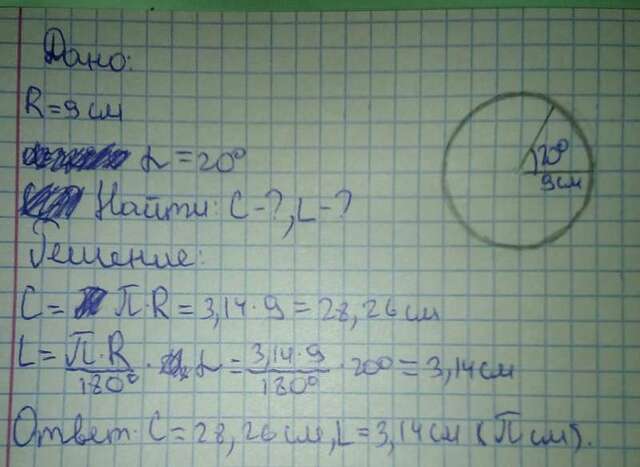 Дано:
R = 9 см
α = 20°
Найти: C-?, L-?
20°
9 см
Решение:
C = π·R = 3,14·9 = 28,26 см
L = π·R/180° · α = 3,14·9/180° · 20° = 3,14 см
Ответ: C = 28,26 см, L = 3,14 см (π см).